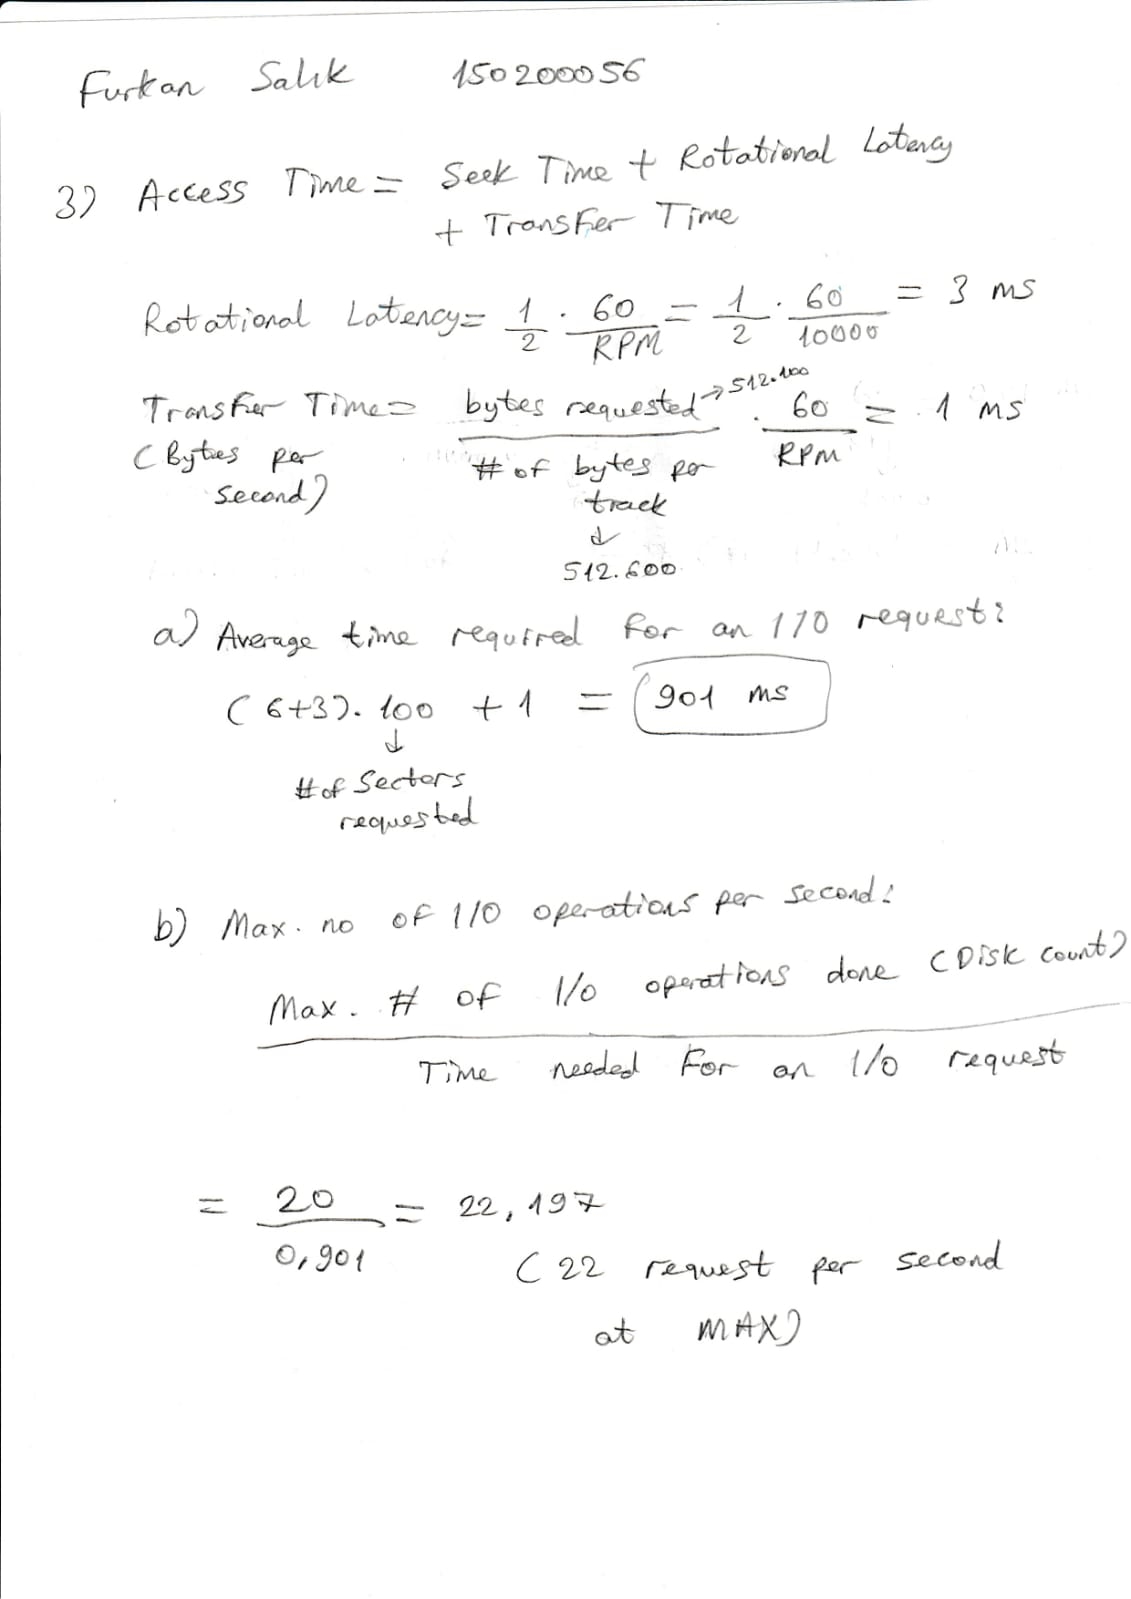 Furkan Salık 150200056
3) Access Time = Seek Time + Rotational Latency
+ Transfer Time
Rotational Latency = 1/2 . 60/RPM = 1/2 . 60/10000 = 3 ms
Transfer Time = bytes requested → 512.100 . 60 = 1 ms
(Bytes per # of bytes per RPM
second) track
↓
512.600
a) Average time required for an I/O request:
(6+3). 100 + 1 = 901 ms
↓
# of Sectors
requested
b) Max. no of I/O operations per second:
Max. # of I/o operations done (Disk count)
Time needed for an I/o request
= 20/0,901 = 22,197
(22 request per second
at MAX)